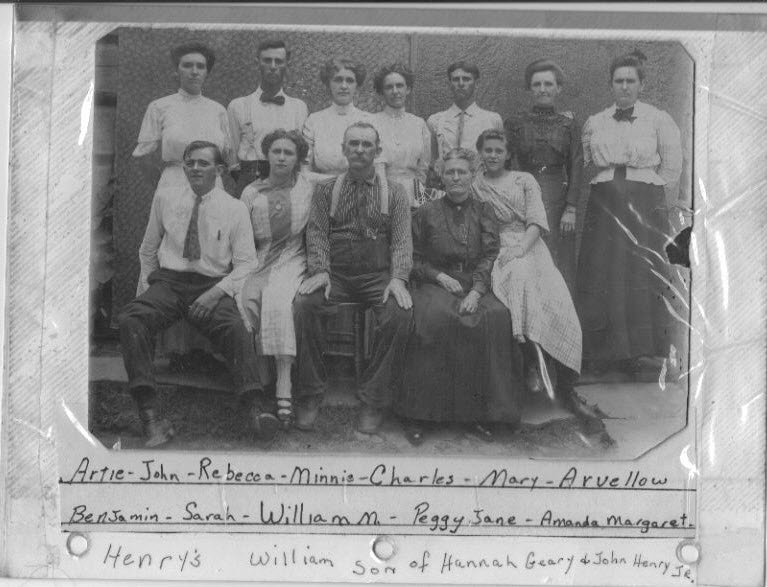 Artie - John - Rebecca - Minnie - Charles - Mary - Arvellow
Benjamin - Sarah - William M. - Peggy Jane - Amanda Margaret.
Henry's William Son of Hannah Geary & John Henry Jr.